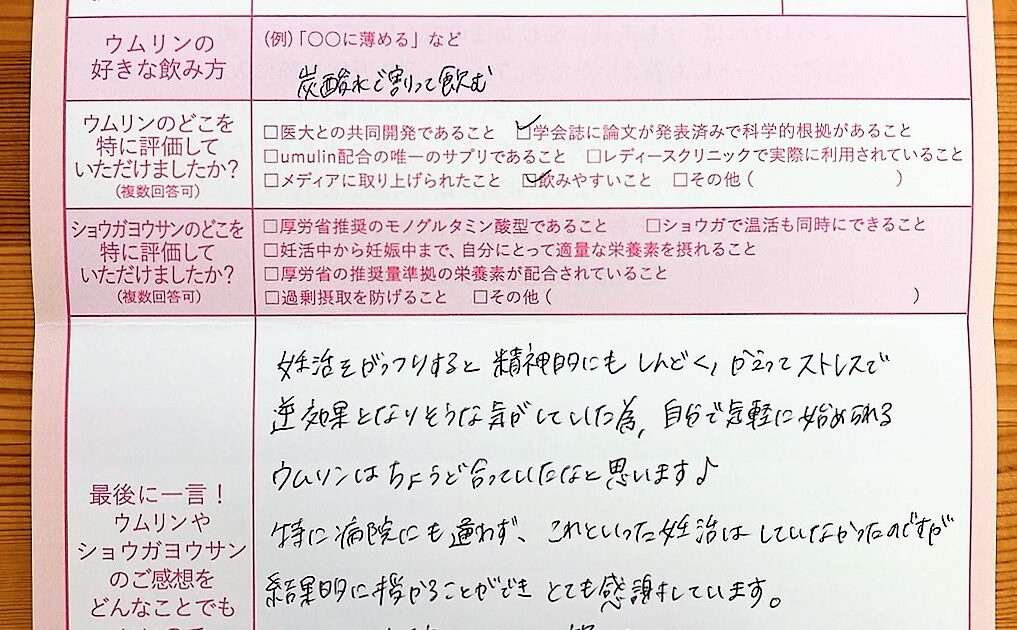 ウムリンの
好きな飲み方
(例)「〇〇に薄める」など
炭酸水で割って飲む
ウムリンのどこを
特に評価して
いただけましたか?
(複数回答可)
□医大との共同開発であること ☑学会誌に論文が発表済みで科学的根拠があること
□umulin配合の唯一のサプリであること □レディースクリニックで実際に利用されていること
□メディアに取り上げられたこと ☑飲みやすいこと □その他( )
ショウガヨウサンのどこを
特に評価して
いただけましたか?
(複数回答可)
□厚労省推奨のモノグルタミン酸型であること □ショウガで温活も同時にできること
□妊活中から妊娠中まで、自分にとって適量な栄養素を摂れること
□厚労省の推奨量準拠の栄養素が配合されていること
□過剰摂取を防げること □その他( )
最後に一言!
ウムリンや
ショウガヨウサン
のご感想を
どんなことでも
妊活をがっつりすると精神的にもしんどく、かえってストレスで
逆効果となりそうな気がしていた為、自分で気軽に始められる
ウムリンはちょうど合っていたなと思います♪
特に病院にも通わず、これといった妊活はしていなかったのですが
結果的に授かることができとても感謝しています。